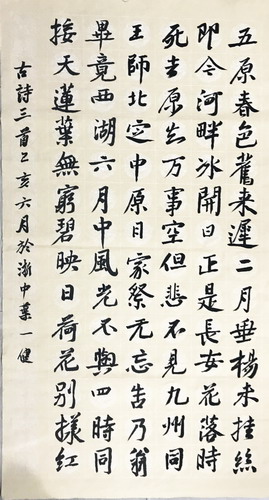 五原春色舊来遲二月垂楊未挂絲
即今河畔冰開日正是長安花落時
死去原知万事空但悲不見九州同
王師北定中原日家祭无忘告乃翁
畢竟西湖六月中風光不與四時同
接天蓮葉無窮碧映日荷花别樣紅
古詩三首己亥六月於浙中葉一健